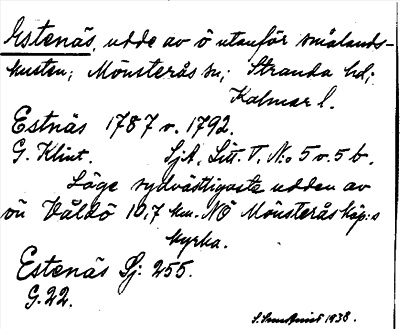 Estenäs, udde av ö utanför smålands-
kusten; Mönsterås sn; Stranda hd;
Kalmar l.
Estnäs 1787 o. 1792.
G. Klint. SjA, Litt. V, N:o 5 o. 5 b.
Läge sydvästligaste udden av
ön Våldö 10,7 km. NÖ Mönsterås köp:s
kyrka.
Estenäs Sj: 255.
G. 22.
1938.